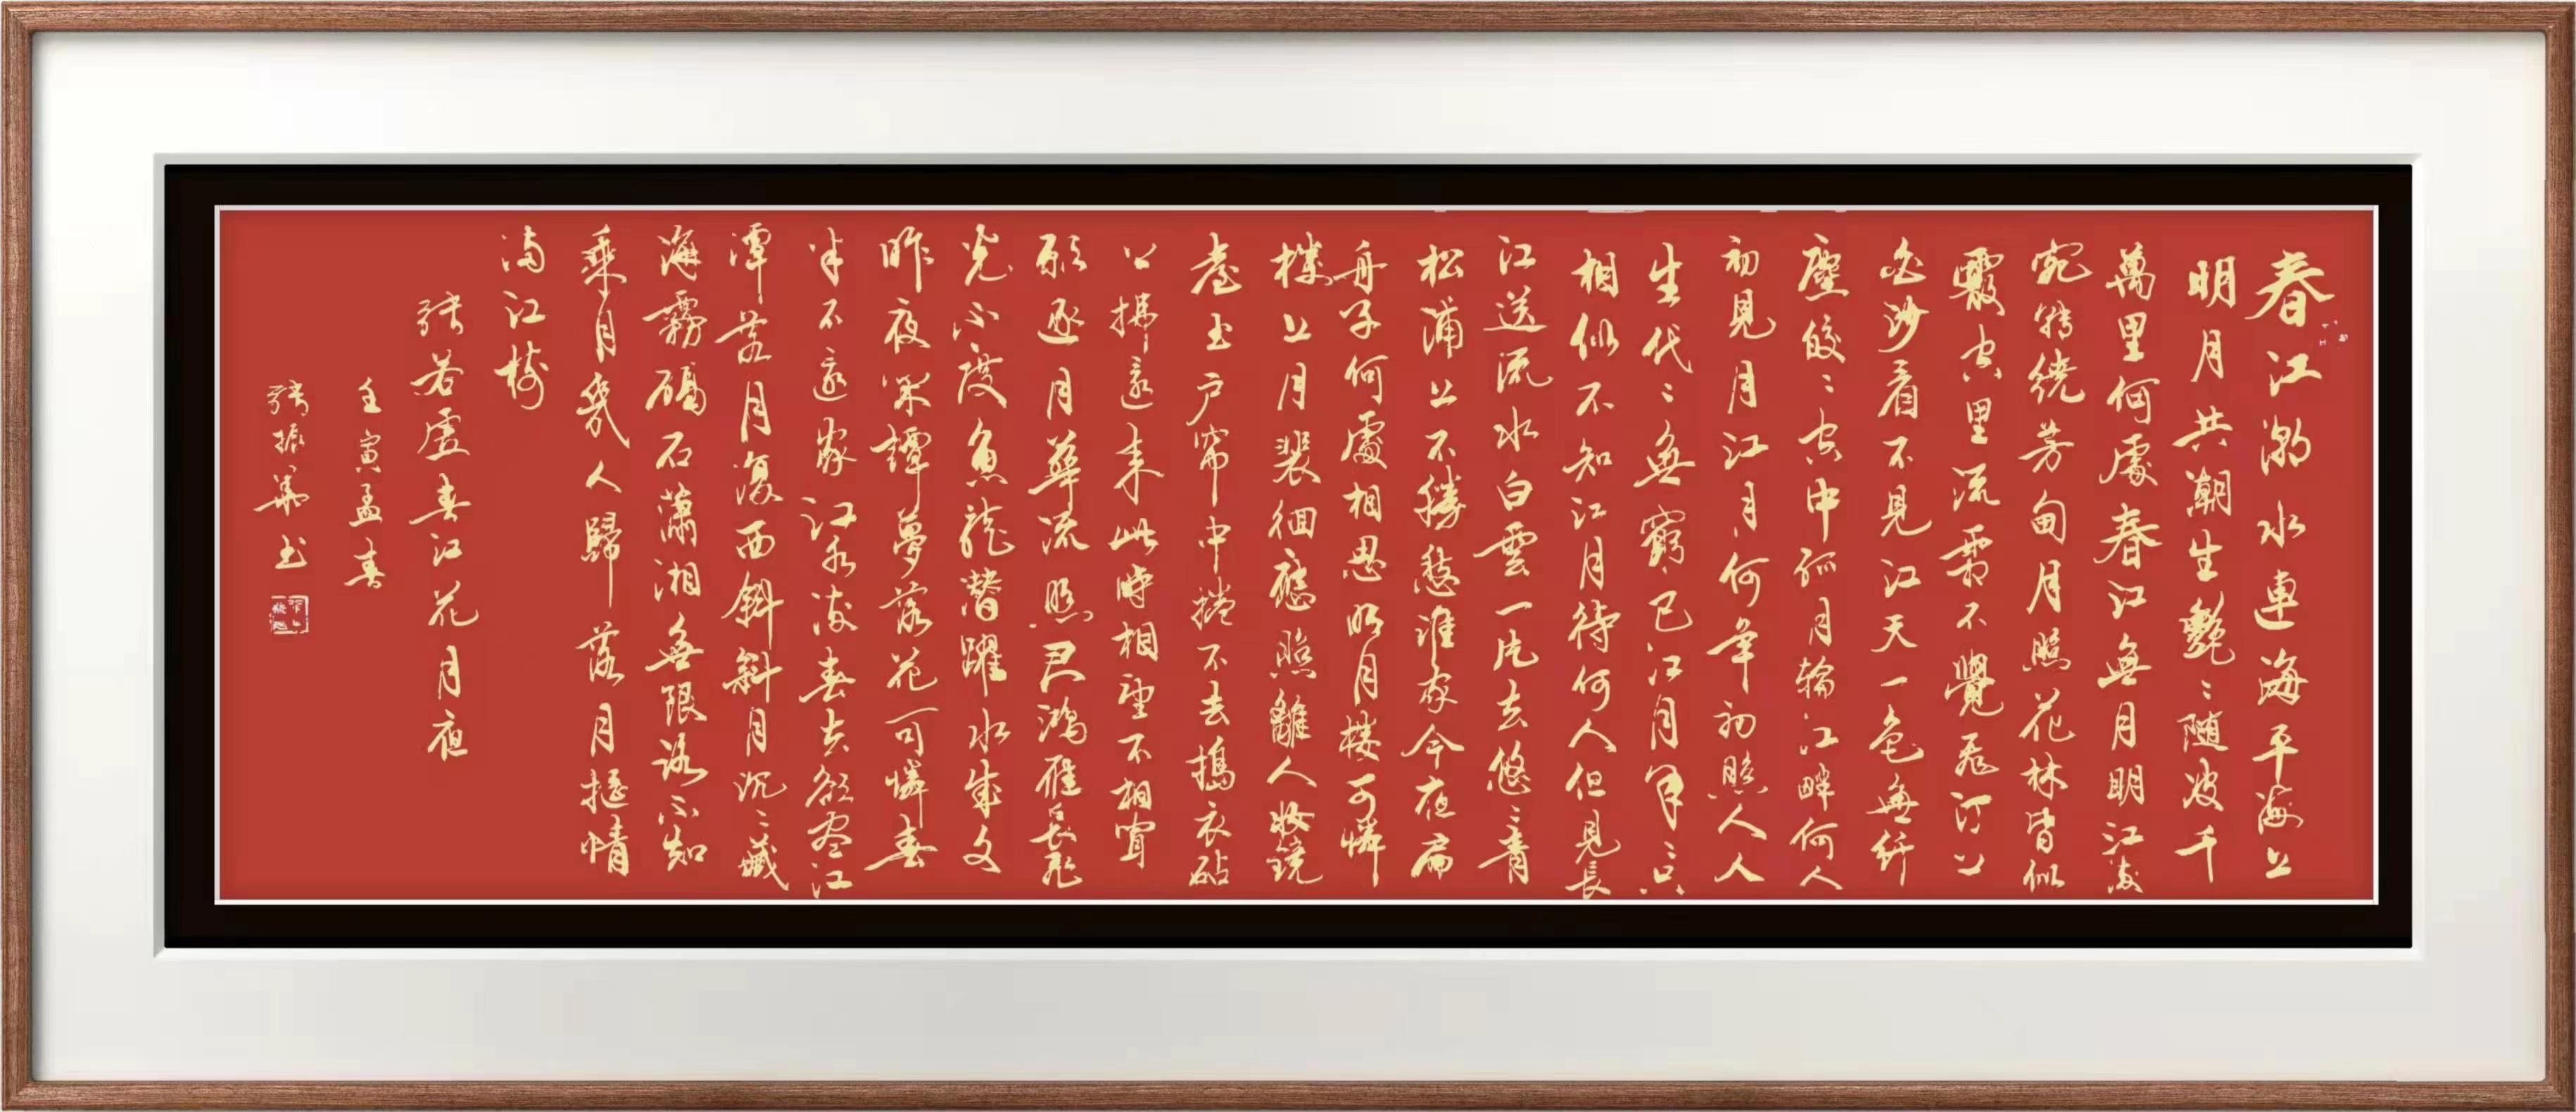 春江潮水連海平海上
明月共潮生艷〻随波千
萬里何處春江無月明江流
宛轉繞芳甸月照花林皆似
霰空里流霜不覺飛汀上
白沙看不見江天一色無纤
塵皎〻空中孤月輪江畔何人
初見月江月何年初照人人
生代〻無窮已江月年〻只
相似不知江月待何人但見長
江送流水白雲一片去悠〻青
松浦上不勝愁誰家今夜扁
舟子何處相思明月楼可憐
樓上月裴徊應照離人妝鏡
臺玉户帘中捲不去搗衣砧
上拂還来此時相望不相聞
願逐月華流照君鴻雁長飛
光不度魚龍潜躍水成文
昨夜閑譚夢落花可憐春
半不還家江水流春去欲盡江
潭落月復西斜斜月沉〻藏
海霧碣石瀟湘無限路不知
乘月幾人歸落月摇情
满江树
張若虚春江花月夜
壬寅孟春
張振華书